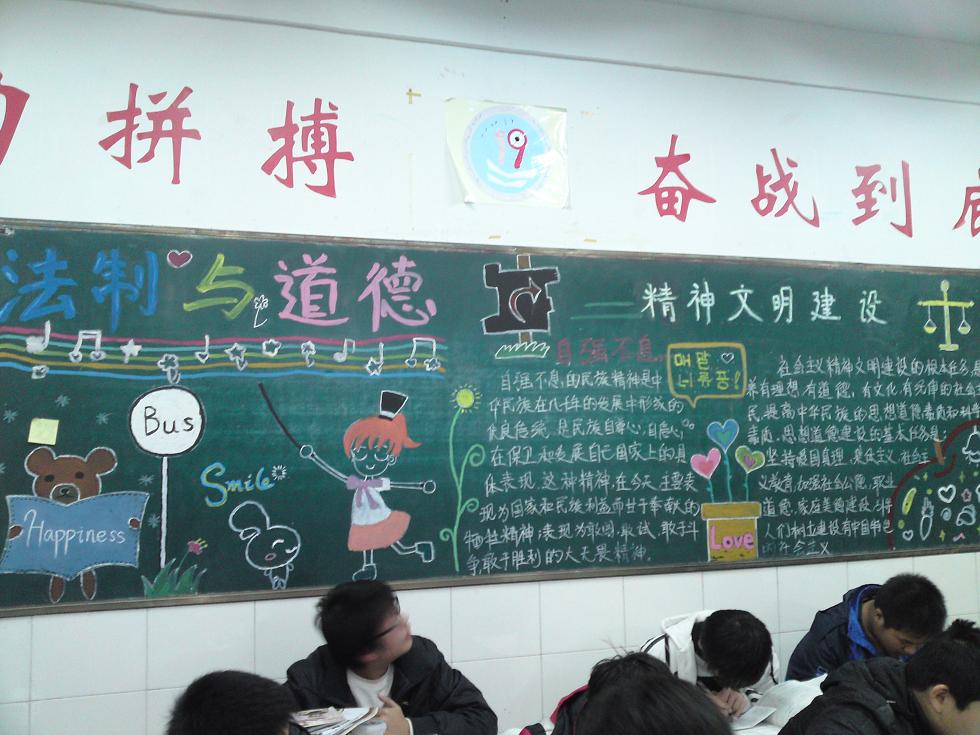 拼搏
19
奋战到
法制与道德
精神文明建设
自强不息
매말
Bus
Smile
Happiness
Love
自强不息的民族精神是中
华民族在几千年的发展中形成的
优良传统,是民族自尊心,自信心
在保卫和发展自己国家上的具
体表现.这种精神,在今天,主要表
现为国家和民族利益而甘于奉献的
牺牲精神,表现为敢闯,敢试,敢于斗
争敢于胜利的大无畏精神.
社会主义精神文明建设的根本任务是
养有理想,有道德,有文化,有纪律的社会
民,提高中华民族的思想道德素质和科
素质.思想道德建设的基本任务是
坚持爱国
义教育,加强社会公德,职业
道德,家庭美德建设
人们树立建设有中国特色
的社会主义